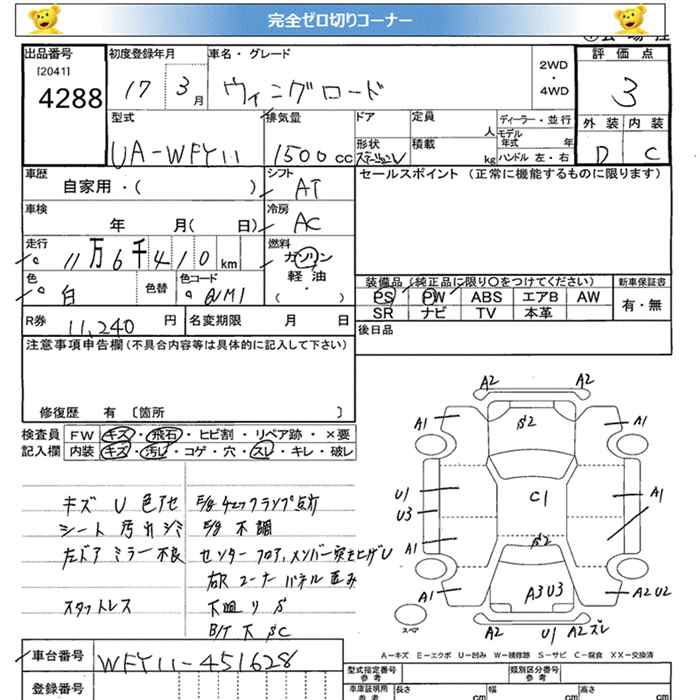 完全ゼロ切りコーナー
出品番号 初度登録年月 車名・グレード 2WD・4WD 評価点
[2041]
4288 17 3月 ウィングロード 3
型式 排気量 ドア 定員 人 ディーラー・並行 外装 内装
UA-WFY11 1500cc 形状 ステーションW 積載 kg モデル年式 年 ハンドル 左・右 D C
車歴 シフト セールスポイント (正常に機能するものに限ります)
自家用・( ) AT
車検 冷房
年 月( 日) AC
走行 燃料
11万6千410km ガソリン
軽油
・
( )
色 色替 色コード
白 QM1
装備品 (純正品に限り○をつけてください) 新車保証書
PS PW ABS エアB AW 有・無
SR ナビ TV 本革
R券 11,240円 名変期限 月 日 後日品
注意事項申告欄(不具合内容等は具体的に記入して下さい)
修復歴 有 〔箇所 〕
検査員 FW キズ・飛石・ヒビ割・リペア跡・×要
記入欄 内装 キズ・汚レ・コゲ・穴・スレ・キレ・破レ
キズ U 色アセ E/g チェックランプ点灯
シート 汚レシミ E/g 不調
左ドアミラー不良 センターフロア、メンバー突き上げU
右R コーナーパネル歪み
スタットレス 下廻り S
B/T 下 SC
A2 A2
A1 A1
U1 C1 A1
U3
A1
A1 A3U3 A2U2
スペア A2 U1 A2ズレ
A-キズ E-エクボ U-凹み W-補修跡 S-サビ C-腐食 XX-交換済
車台番号 WFY11-451628
型式指定番号 類別区分番号
参考 参考
登録番号 車庫証明用 参考 長さ cm 幅 cm 高さ cm